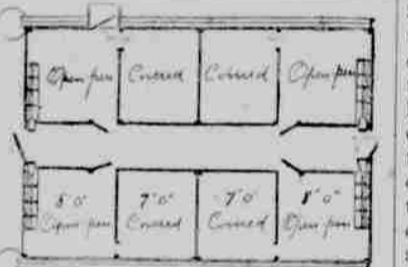 Open pen Covered Covered Open pen
8' 0" 7' 0" 7' 0" 8' 0"
Open pen Covered Covered Open pen